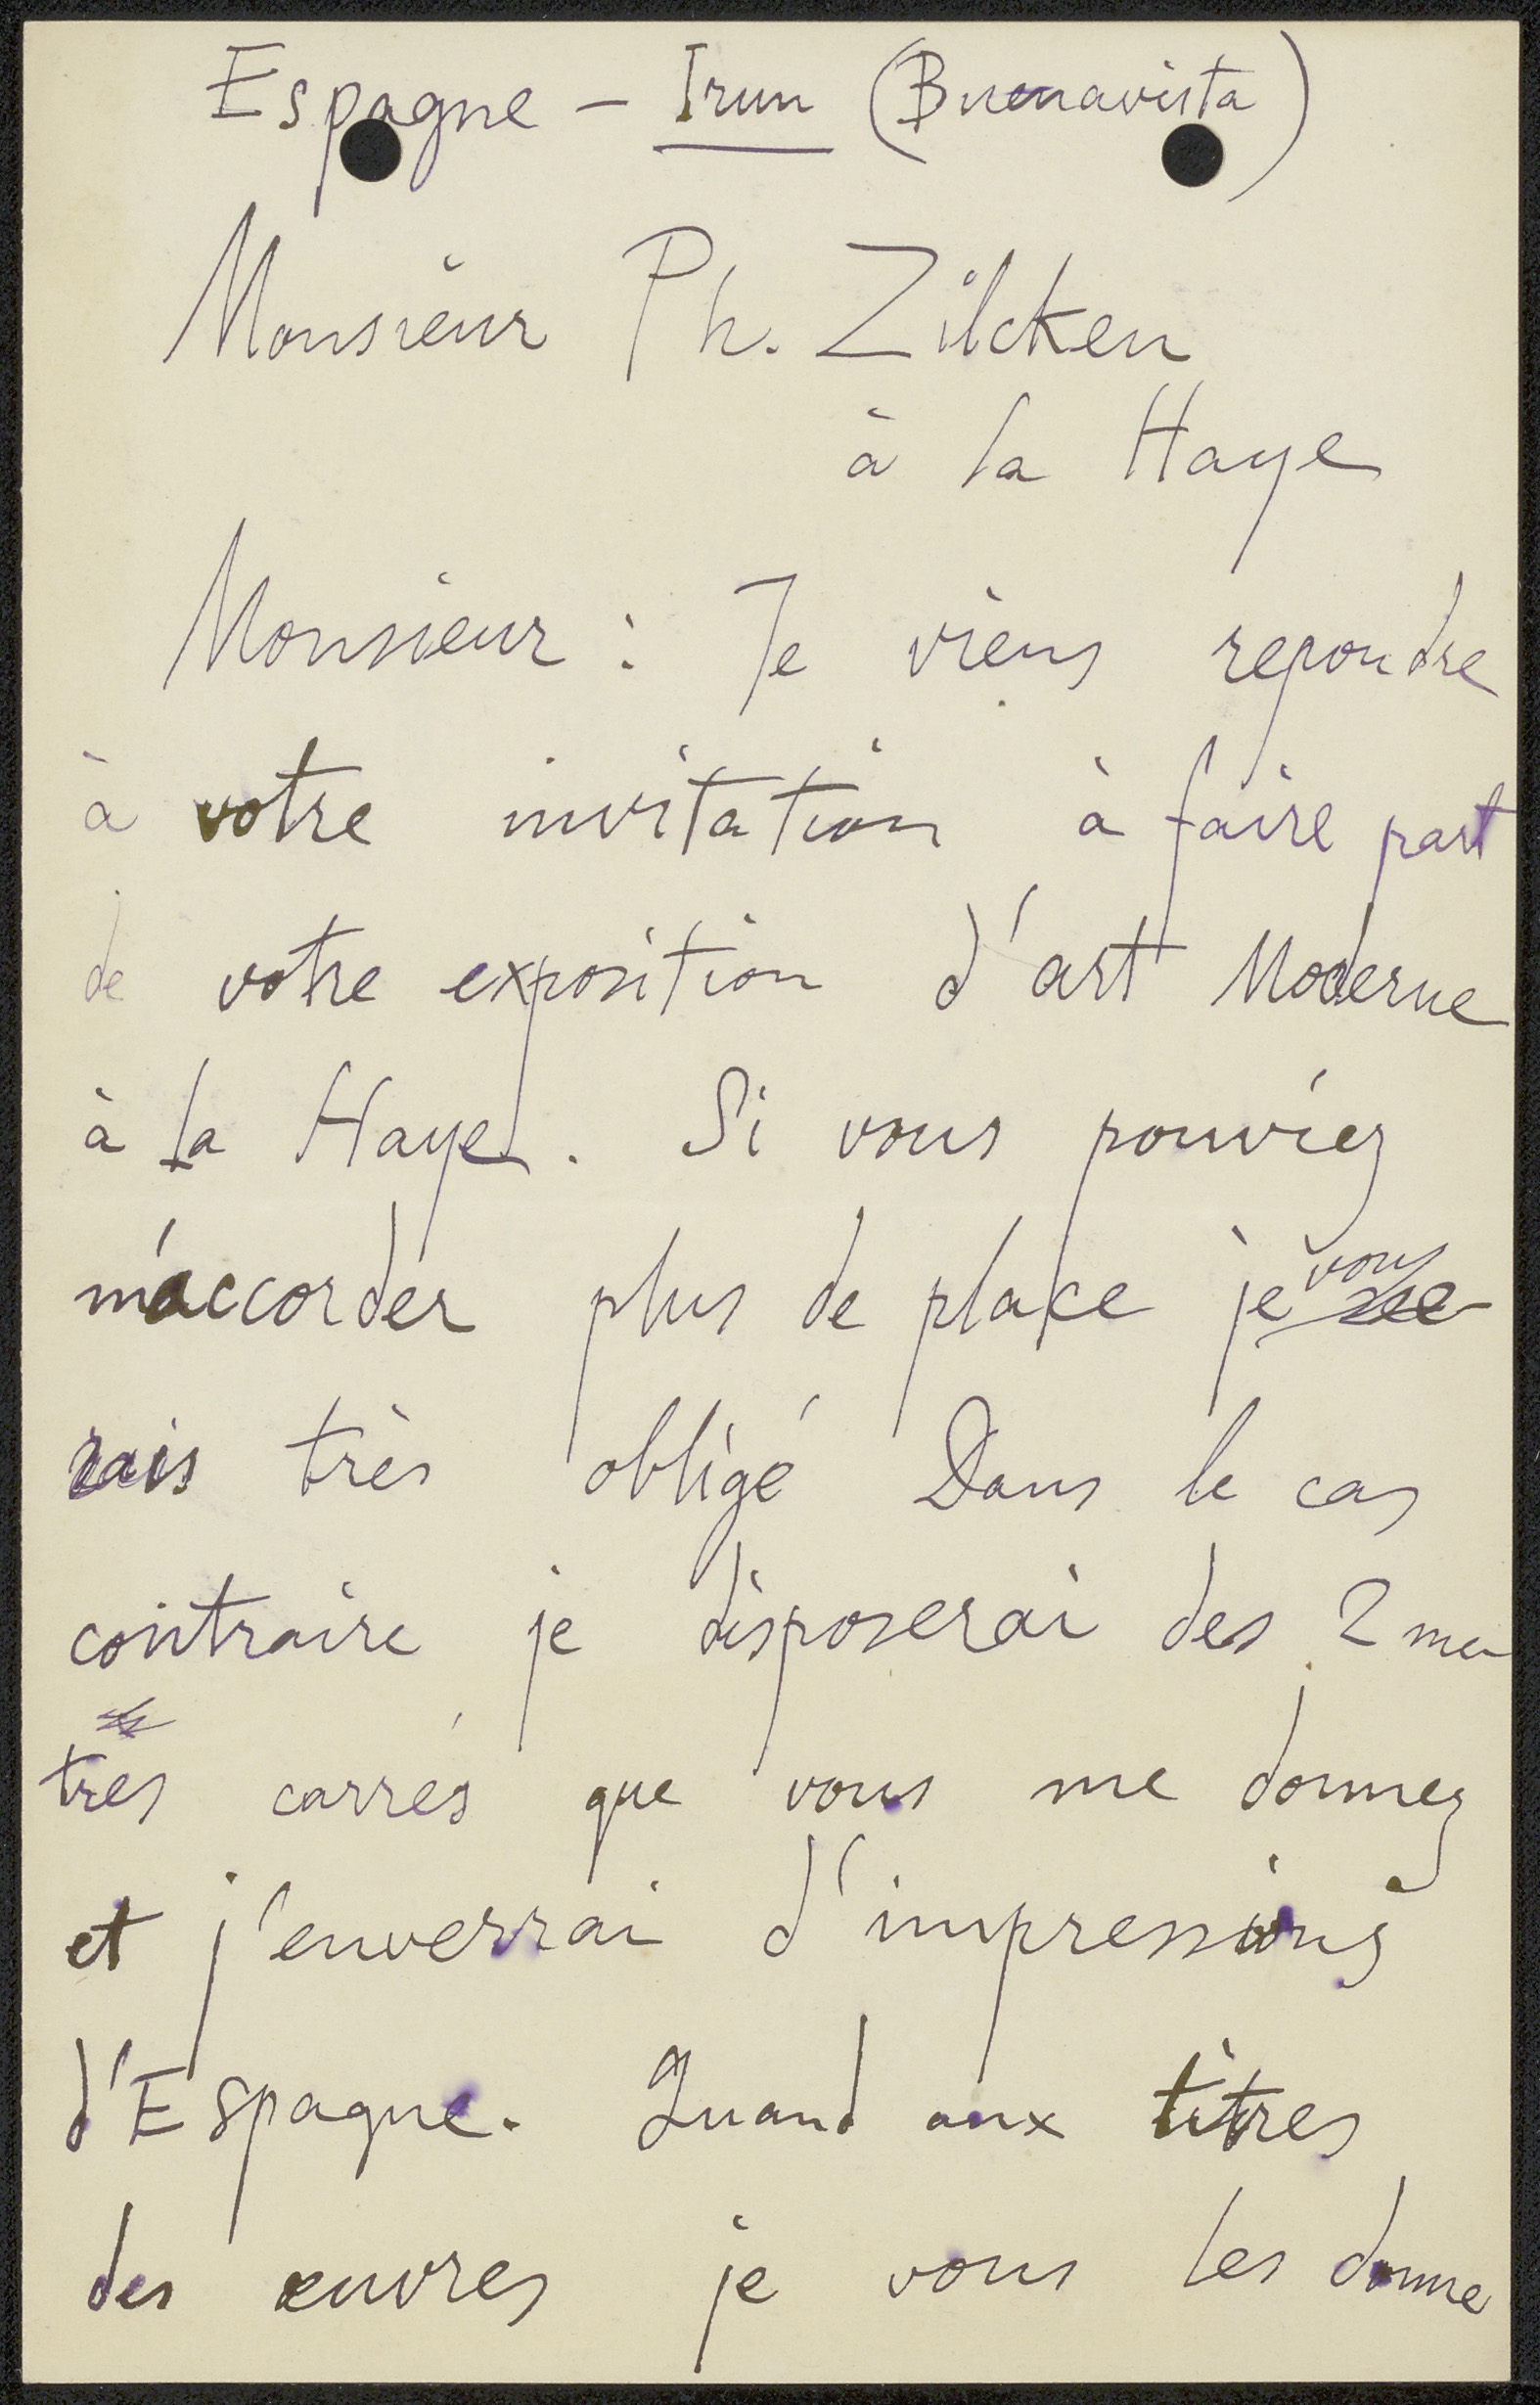 Espagne – Irun (Buenavista)
Monsieur Ph. Zilcken
à la Haye
Monsieur : Je viens repondre
à votre invitation à faire part
de votre exposition d'art Moderne
à la Haye. Si vous pouviez
m'accorder plus de place je vous se
rais très obligé Dans le cas
contraire je disposerai des 2 me
tres carrés que vous me donnez
et j'enverrai d'impressions
d'Espagne. Quand aux titres
des œuvres je vous les donne